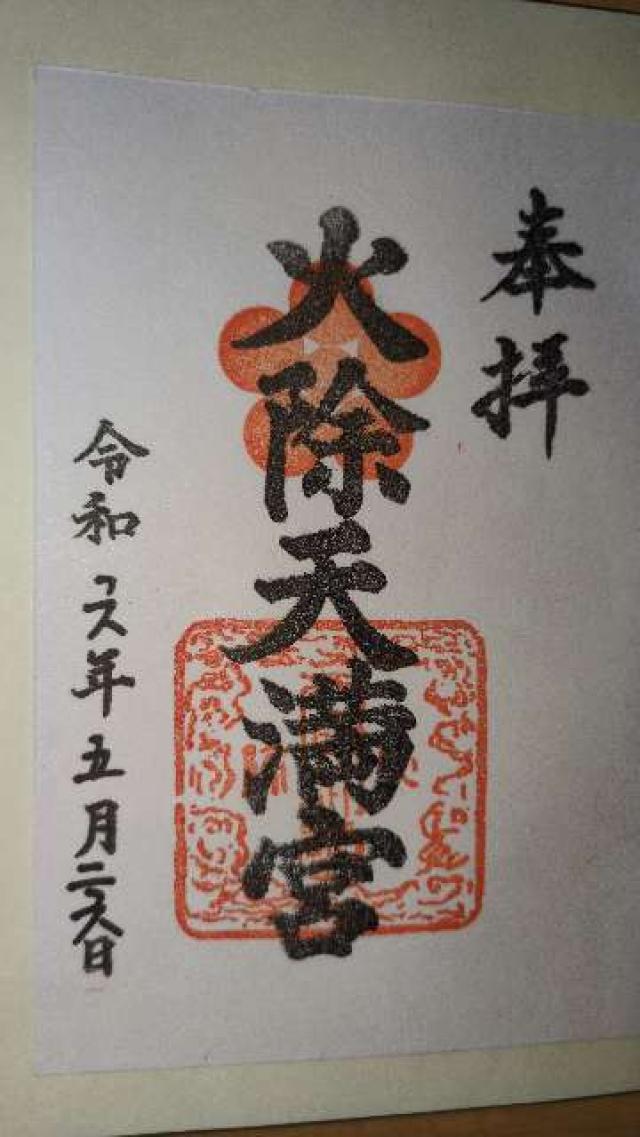 奉拝
火除天満宮
令和六年五月二六日